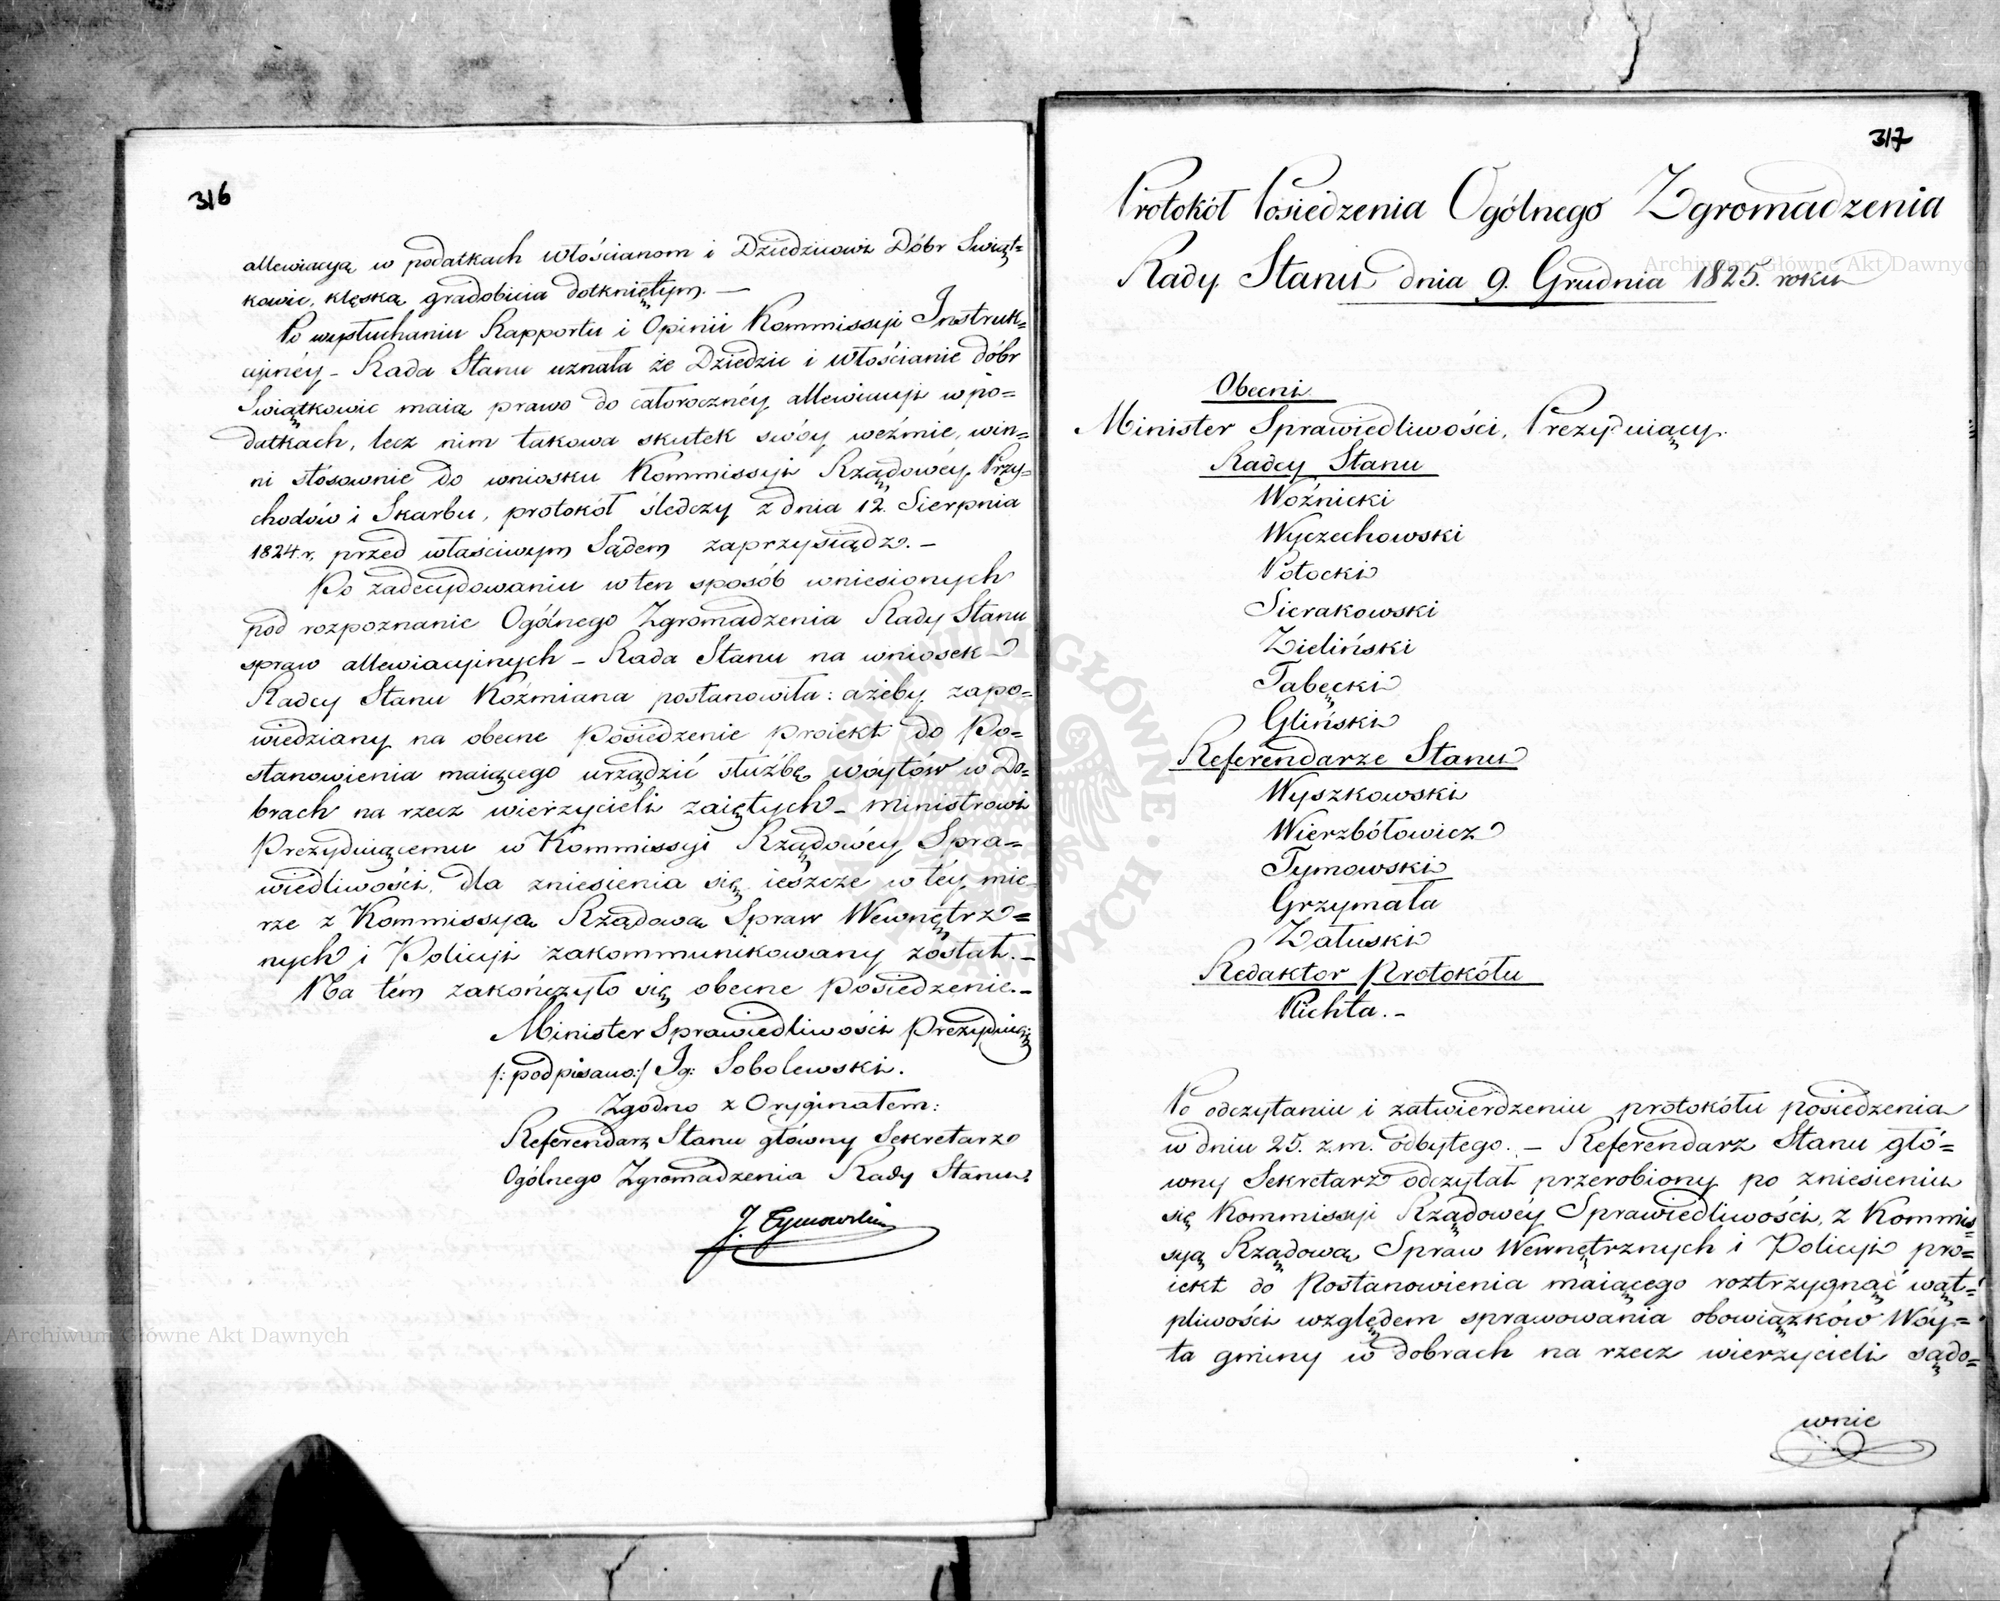 316
allewiacyą w podatkach włościanom i Dziedzicowi Dóbr Swiąt=
kowic, klęską gradobicia dotkniętym. —
Po wysłuchaniu Rapportu i Opinii Kommissyi Instruk=
cyinéy – Rada Stanu uznała że Dziedzic i włościanie dóbr
Swiątkowic maią prawo do całorocznéy allewiacyi w po=
datkach, lecz nim takowa skutek swóy weźmie, win=
ni stósownie do wniosku Kommissyi Rządowéy Przy=
chodów i Skarbu, protokół śledczy z dnia 12. Sierpnia
1824 r. przed właściwym Sądem zaprzysiądz. –
Po zadecydowaniu w ten sposób wniesionych
pod rozpoznanie Ogólnego Zgromadzenia Rady Stanu
spraw allewiacyinych – Rada Stanu na wniosek
Radcy Stanu Koźmiana postanowiła: ażeby zapo=
wiedziany na obecne Posiedzenie proiekt do Po=
stanowienia maiącego urządzić służbę wóytów w Do=
brach na rzecz wierzycieli zaiętych – Ministrowi
Prezyduiącemu w Kommissyi Rządowéy Spra=
wiedliwości, dla zniesienia się ieszcze w téy mie
rze z Kommissyą Rządową Spraw Wewnętrz=
nych i Policyi zakommunikowany został. –
Na tém zakończyło się obecne Posiedzenie. –
Minister Sprawiedliwości Prezyduiący
/: podpisano:/ Ig: Sobolewski.
Zgodno z Oryginałem:
Referendarz Stanu główny Sekretarz
Ogólnego Zgromadzenia Rady Stanu
J. Tymowski
317
Protokół Posiedzenia Ogólnego Zgromadzenia
Rady Stanu dnia 9. Grudnia 1825. roku
Obecni
Minister Sprawiedliwości, Prezyduiący.
Radcy Stanu
Woźnicki
Wyczechowski
Potocki
Sierakowski
Zieliński
Tabęcki
Gliński
Referendarze Stanu
Wyszkowski
Wierzbółowicz
Tymowski
Grzymała
Załuski
Redaktor Protokółu
Richta. –
Po odczytaniu i zatwierdzeniu protokółu posiedzenia
w dniu 25. z.m. odbytego. – Referendarz Stanu głó=
wny Sekretarz odczytał przerobiony po zniesieniu
się Kommissyi Rządowéy Sprawiedliwości, z Kommis
syą Rządową Spraw Wewnętrznych i Policyi pro=
iekt do Postanowienia maiącego roztrzygnąć wąt=
pliwości względem sprawowania obowiązków Wóy=
ta gminy w dobrach na rzecz wierzycieli sądo=
wnie
Archiwum Główne Akt Dawnych
Archiwum Główne Akt Dawnych
ARCHIWUM GŁÓWNE · AKT DAWNYCH ·